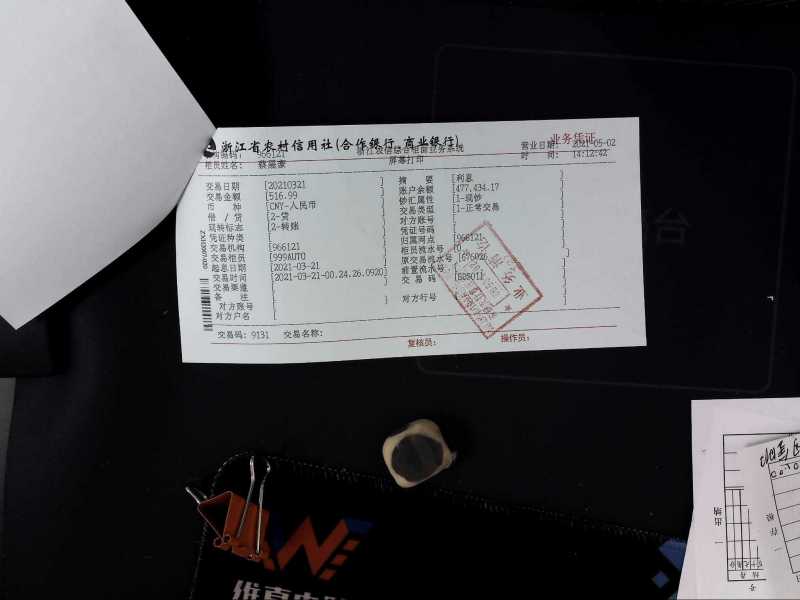 浙江省农村信用社(合作银行 商业银行)
业务凭证
浙江农信综合柜面业务系统
屏幕打印
966121
柜员姓名:
营业日期: 2021-05-02
时 间: 14:12:42
交易日期 [20210321 ]
交易金额 [516.99 ]
币 种 [CNY-人民币
借 / 贷 [2-贷
现转标志 [2-转账
凭证种类 [
交易机构 [966121
交易柜员 [999AUTO
起息日期 [2021-03-21
交易时间 [2021-03-21-00.24.26.0920]
交易渠道 [
备 注 [ ]
对方账号 [
对方户名 [
摘 要 [利息
账户余额 [477,434.17
钞汇属性 [1-现钞
交易类型 [1-正常交易
对方账号 [
凭证号码 [
归属网点 [966121
柜员流水号 [
原交易流水号
前置流水号 [
交 易 码
对方行号 [ ]
交易码: 9131 交易名称:
复核员: 操作员:
一 出 纳
一 存 根